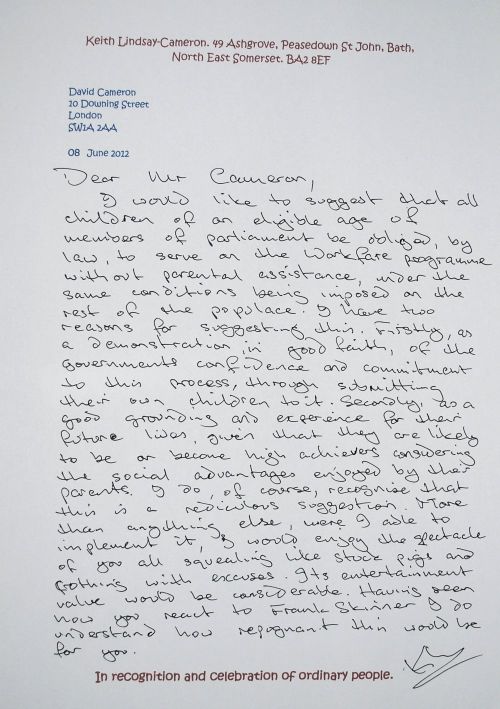 Keith Lindsay-Cameron. 49 Ashgrove, Peasedown St John, Bath,
North East Somerset. BA2 8EF
David Cameron
10 Downing Street
London
SW1A 2AA
08 June 2012
Dear Mr Cameron,
I would like to suggest that all
children of an eligible age of
members of parliament be obliged, by
law, to serve on the Workfare programme
without parental assistance, under the
same conditions being imposed on the
rest of the populace. I have two
reasons for suggesting this. Firstly, as
a demonstration, in good faith, of the
governments confidence and commitment
to this process, through submitting
their own children to it. Secondly, as a
good grounding and experience for their
future lives, given that they are likely
to be or become high achievers considering
the social advantages enjoyed by their
parents. I do, of course, recognise that
this is a rediculous suggestion. More
than anything else, were I able to
implement it, I would enjoy the spectacle
of you all squealing like stuck pigs and
frothing with excuses. Its entertainment
value would be considerable. Having seen
how you react to Frank Skinner I do
understand how repugnant this would be
for you.
In recognition and celebration of ordinary people.